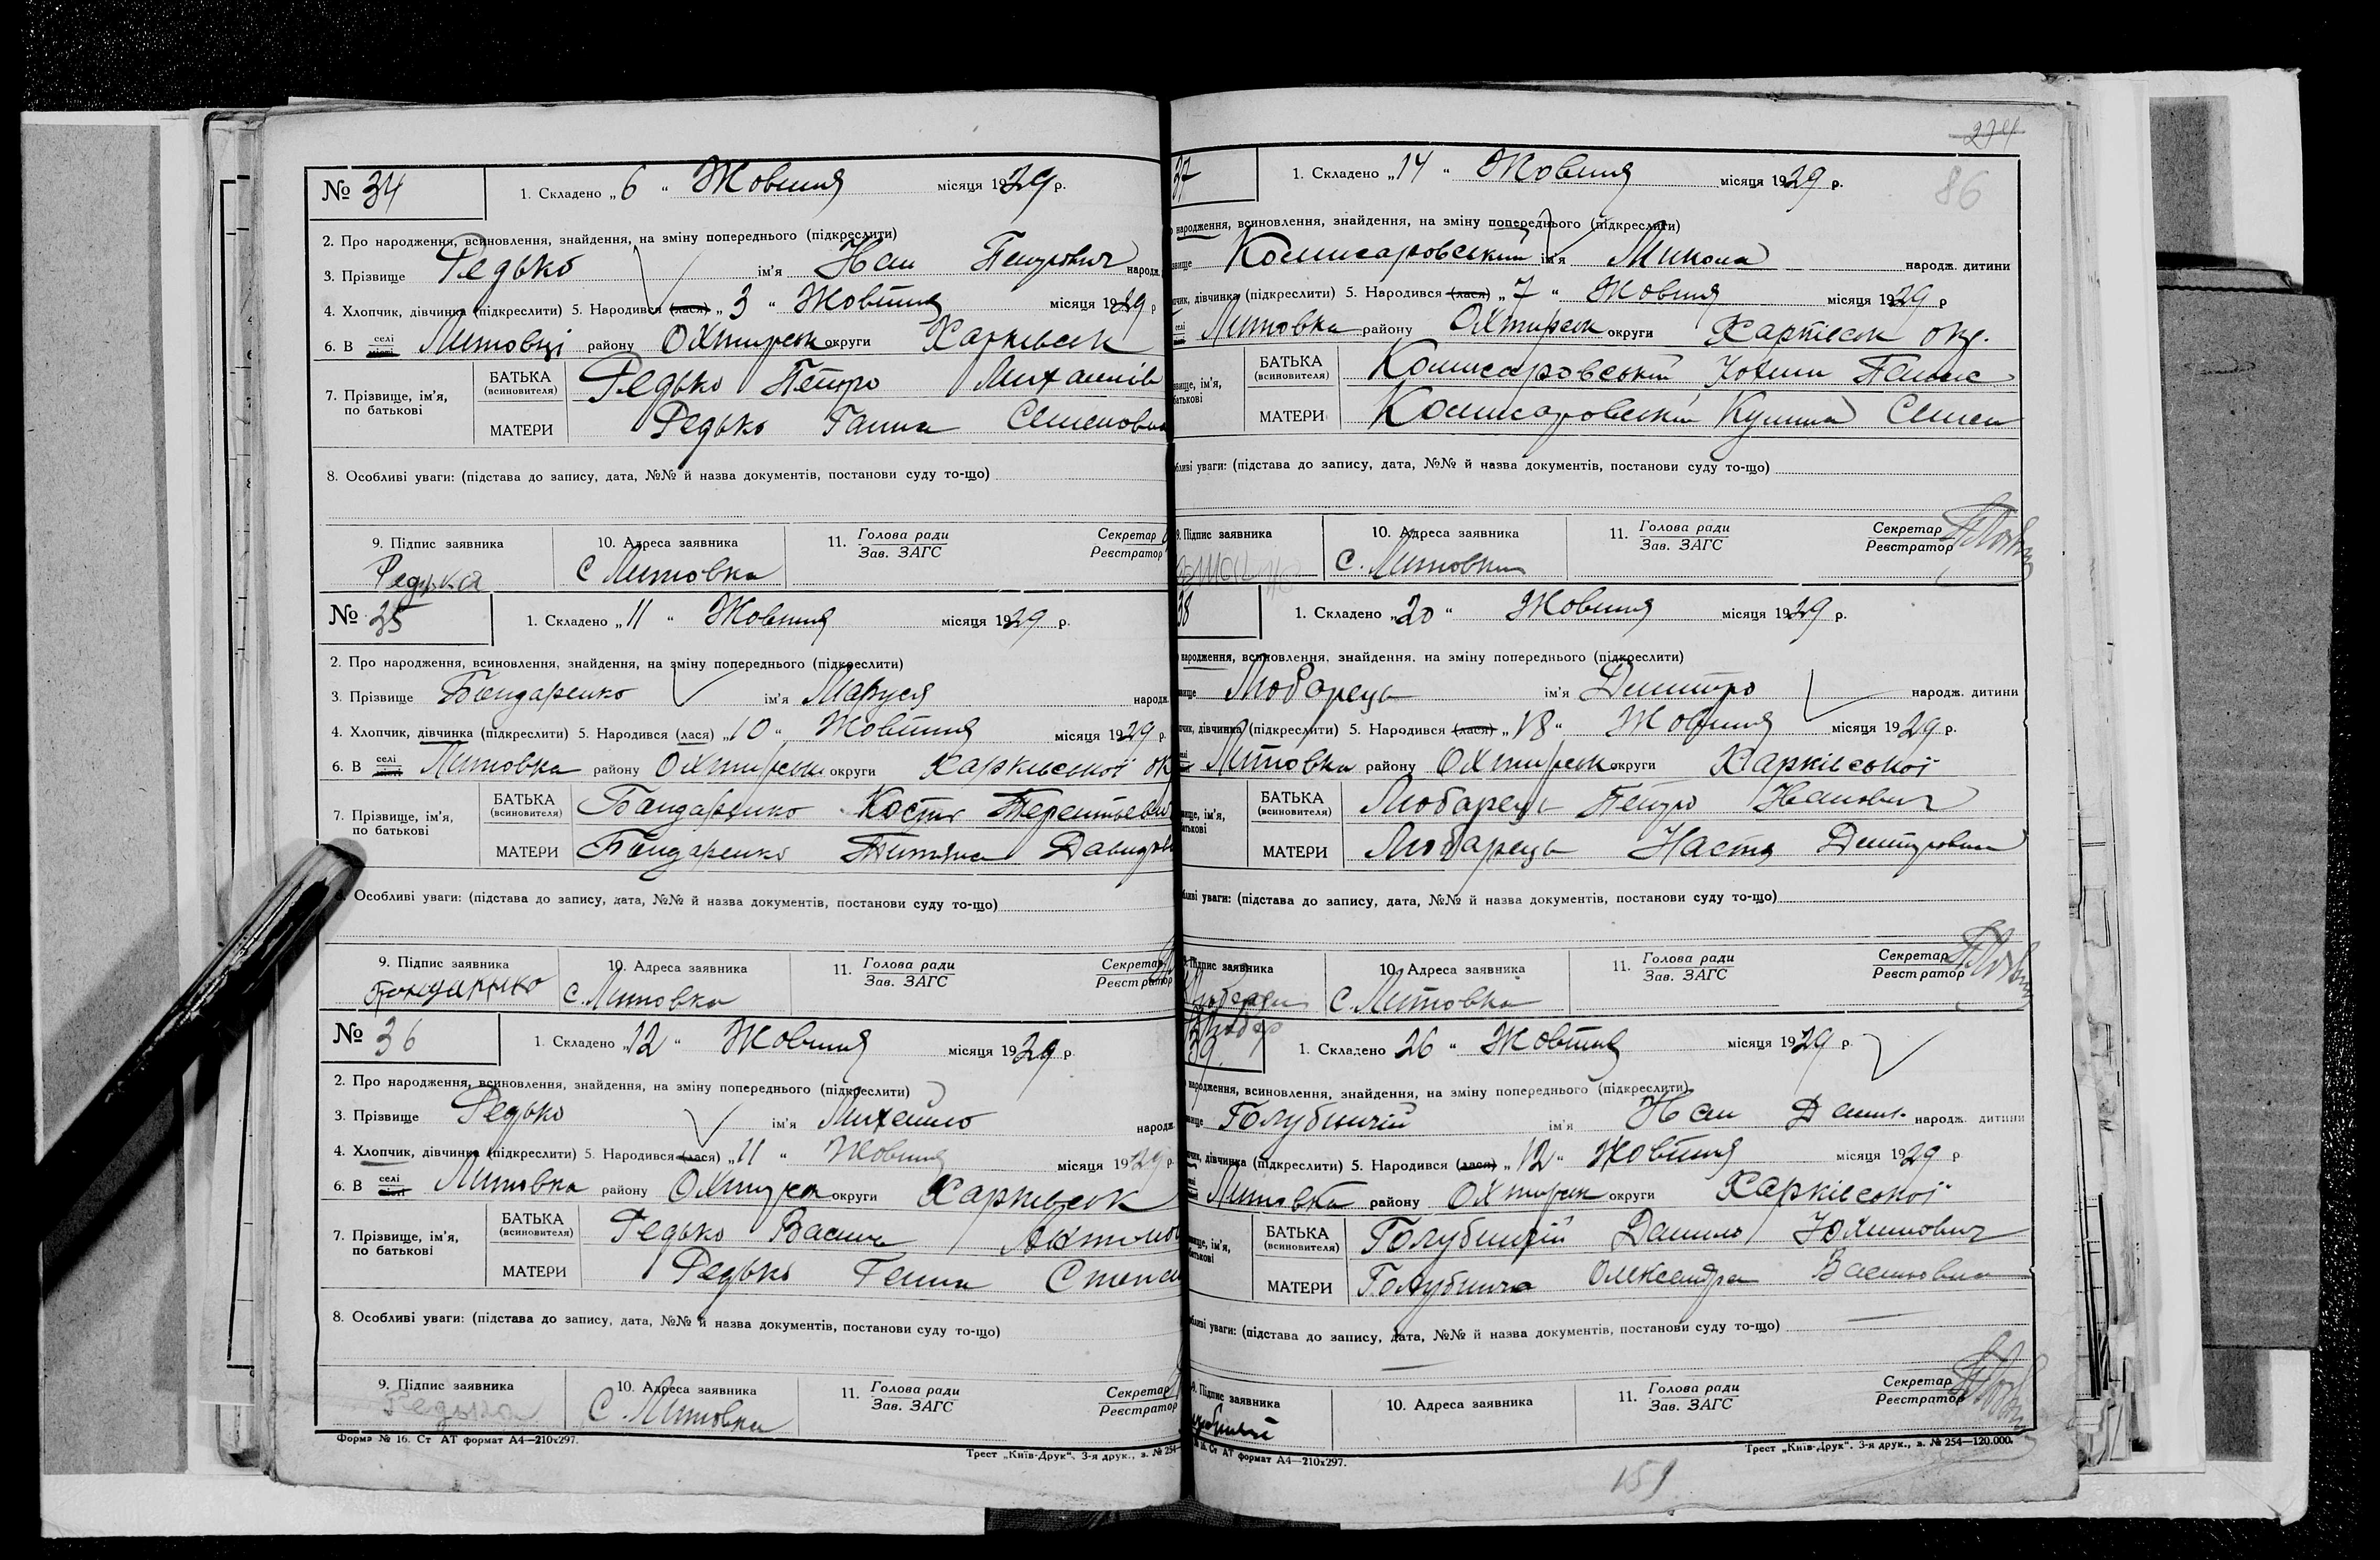 № 34
1. Складено „6“ Жовтня місяця 1929 р.
2. Про народження, всиновлення, знайдення, на зміну попереднього (підкреслити)
3. Прізвище Редько ім'я Іван Петрович народж.
4. Хлопчик, дівчинка (підкреслити) 5. Народився (лася) „3“ Жовтня місяця 1929 р
6. В селі місті Литовці району Охтирськ округи Харківськ
7. Прізвище, ім'я, по батькові
БАТЬКА (всиновителя) Редько Петро Михайлів
МАТЕРИ Редько Ганна Семеновна
8. Особливі уваги: (підстава до запису, дата, №№ й назва документів, постанови суду то-що)
9. Підпис заявника 10. Адреса заявника 11. Голова ради Зав. ЗАГС Секретар Реєстратор
Редька С Литовка
№ 35
1. Складено „11“ Жовтня місяця 1929 р.
2. Про народження, всиновлення, знайдення, на зміну попереднього (підкреслити)
3. Прізвище Бондаренко ім'я Маруся народж.
4. Хлопчик, дівчинка (підкреслити) 5. Народився (лася) „10“ Жовтня місяця 1929 р.
6. В селі місті Литовка району Охтирськ округи Харківської ок
7. Прізвище, ім'я, по батькові
БАТЬКА (всиновителя) Бондаренко Кость Терентьеви
МАТЕРИ Бондаренко Титяна Давидов
Особливі уваги: (підстава до запису, дата, №№ й назва документів, постанови суду то-що)
9. Підпис заявника 10. Адреса заявника 11. Голова ради Зав. ЗАГС Секретар Реєстратор
Бондаренко С. Литовка
№ 36
1. Складено „12“ Жовтня місяця 1929 р.
2. Про народження, всиновлення, знайдення, на зміну попереднього (підкреслити)
3. Прізвище Редько ім'я Михайло народж.
4. Хлопчик, дівчинка (підкреслити) 5. Народився (лася) „11“ Жовтня місяця 1929 р.
6. В селі місті Литовка району Охтирськ округи Харківськ
7. Прізвище, ім'я, по батькові
БАТЬКА (всиновителя) Редько Василь
МАТЕРИ Редько Ганна Степан
8. Особливі уваги: (підстава до запису, дата, №№ й назва документів, постанови суду то-що)
9. Підпис заявника 10. Адреса заявника 11. Голова ради Зав. ЗАГС Секретар Реєстратор
Редька С. Литовка
Форма № 16. Ст АТ формат А4—210х297.
Трест „Київ-Друк“. 3-я друк., з. № 254
274
86
37
1. Складено „14“ Жовтня місяця 1929 р.
народження, всиновлення, знайдення, на зміну попереднього (підкреслити)
Комисаровський ім'я Микола народж. дитини
дівчинка (підкреслити) 5. Народився (лася) „7“ Жовтня місяця 1929 р
селі Литовка району Охтирськ округи Харківськ окр.
ім'я, батькові
БАТЬКА (всиновителя) Комисаровській Юхим Панас
МАТЕРИ Комисаровській Семен
уваги: (підстава до запису, дата, №№ й назва документів, постанови суду то-що)
9. Підпис заявника 10. Адреса заявника 11. Голова ради Зав. ЗАГС Секретар Реєстратор
С. Литовка
38
1. Складено „20“ Жовтня місяця 1929 р.
народження, всиновлення, знайдення, на зміну попереднього (підкреслити)
Любарець ім'я Дмитро народж. дитини
дівчинка (підкреслити) 5. Народився (лася) „18“ Жовтня місяця 1929 р.
Литовка району Охтирськ округи Харківської
ім'я, батькові
БАТЬКА (всиновителя) Любарець Петро Іванович
МАТЕРИ Любарець Настя Дмитровна
уваги: (підстава до запису, дата, №№ й назва документів, постанови суду то-що)
Підпис заявника 10. Адреса заявника 11. Голова ради Зав. ЗАГС Секретар Реєстратор
С. Литовка
39
1. Складено 26“ Жовтня місяця 1929 р.
народження, всиновлення, знайдення, на зміну попереднього (підкреслити)
Голубничій ім'я Іван Данил. народж. дитини
дівчинка (підкреслити) 5. Народився (лася) „12“ Жовтня місяця 1929 р
Литовка району Охтирськ округи Харківської
ім'я, батькові
БАТЬКА (всиновителя) Голубничій Данило Юхимович
МАТЕРИ Голубнича Олександра Василовна
уваги: (підстава до запису, дата, №№ й назва документів, постанови суду то-що)
Підпис заявника 10. Адреса заявника 11. Голова ради Зав. ЗАГС Секретар Реєстратор
№ 16. Ст АТ формат А4—210х297.
Трест „Київ-Друк“. 3-я друк., з. № 254—120.000.
151